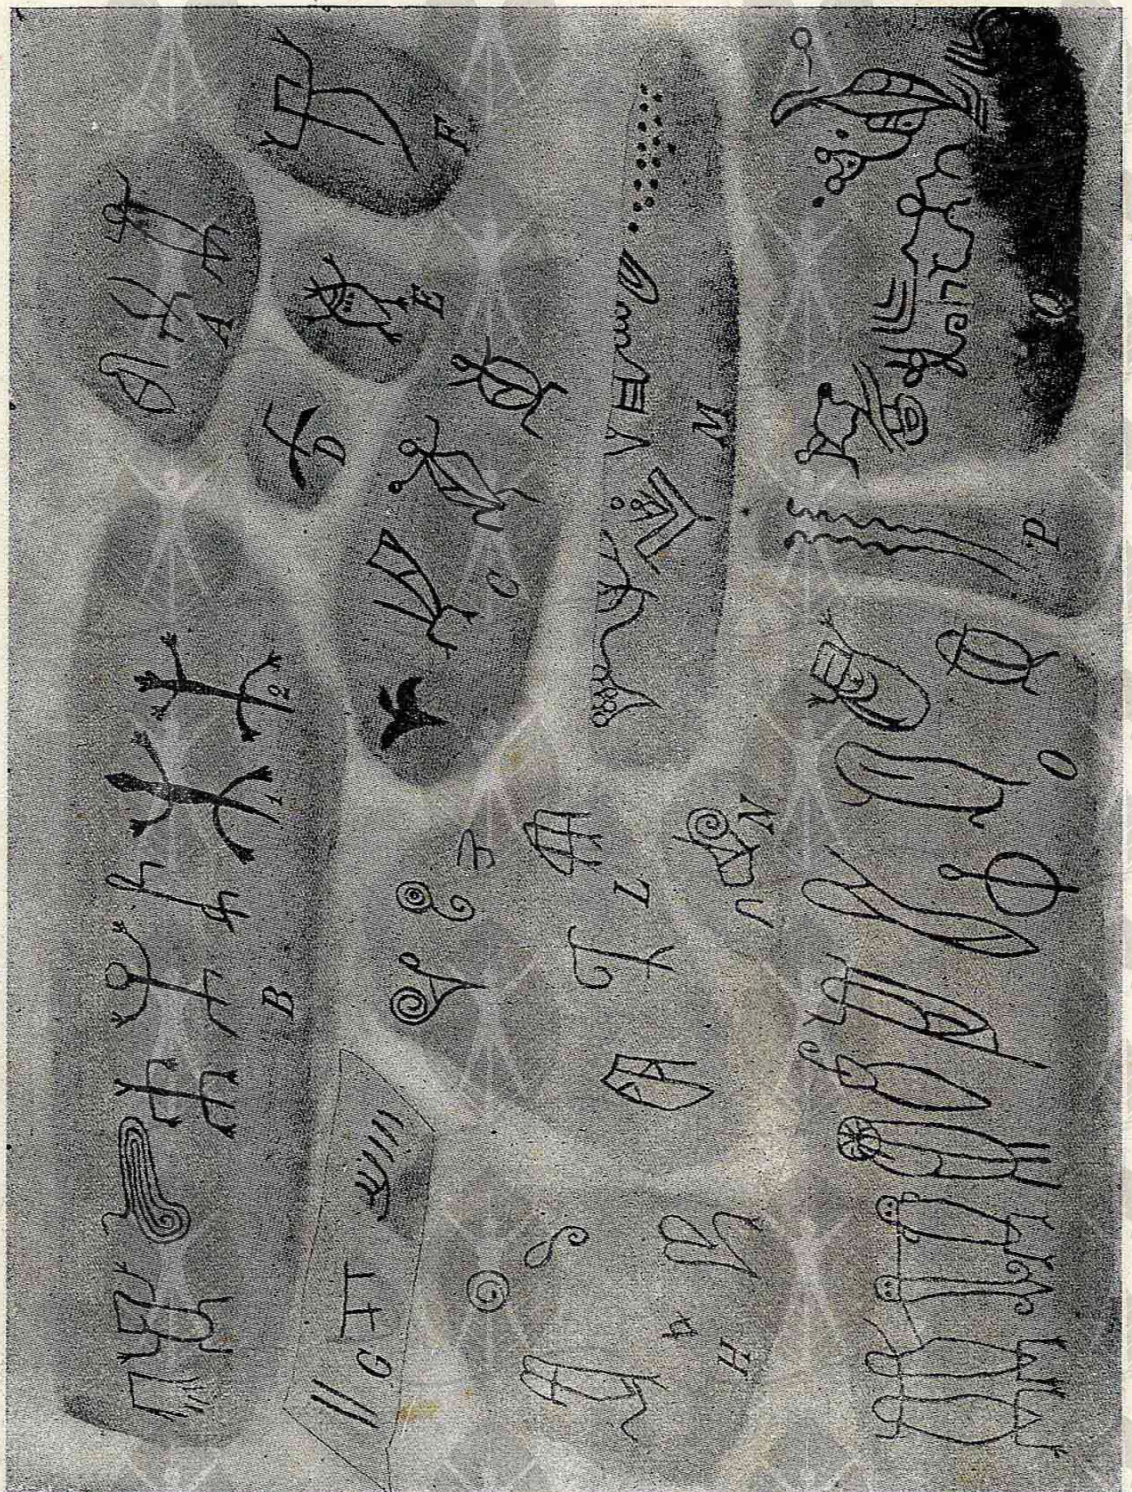 A
B
1
2
C
D
E
F
G
H
L
M
N
O
P
Q